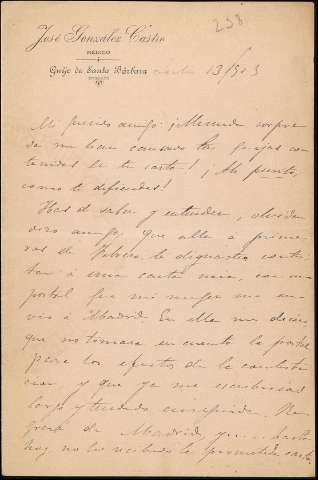 238
José González Castro
MÉDICO
Guijo de Santa Bárbara 13/903
Mi querido amigo: ¡Menuda sorpre
sa me han causado tus quejas con
tenidas en tu carta! ¡Ah punto,
como te defiendes!
Has de saber y entender, olvida
dizo amigo, que allá a prime
ros de Febrero, te dignastes contes
tar a una carta mía, con una
postal que mi mujer me en
vió a Madrid. En ella me decías
que no tomara en cuenta la postal
para los efectos de la contesta
ción, y que ya me escribirías
largo y tendido enseguida. Re
gresé de Madrid, y.... hasta
hoy no he recibido la prometida carta